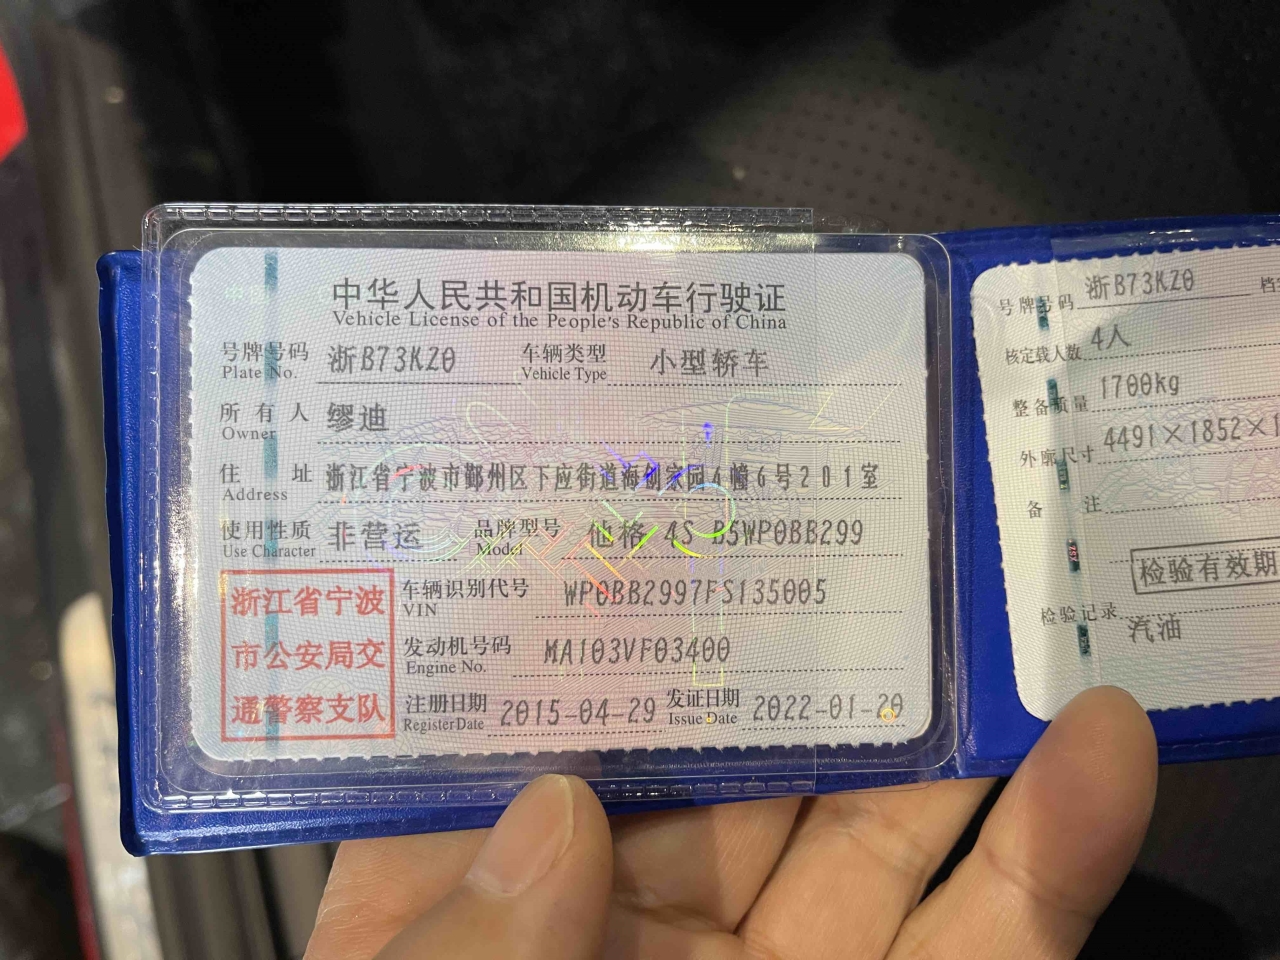 中华人民共和国机动车行驶证
Vehicle License of the People's Republic of China
号牌号码 浙B73KZ0 车辆类型 小型轿车
Plate No. Vehicle Type
所有人 缪迪
Owner
住址 浙江省宁波市鄞州区下应街道海创家园4幢6号201室
Address
使用性质 非营运 品牌型号 他格 4S B5WP0BB299
Use Character Model
浙江省宁波
市公安局交
通警察支队
车辆识别代号 WP0BB2997FS135005
VIN
发动机号码 MA103VF03400
Engine No.
注册日期 2015-04-29 发证日期 2022-01-20
Register Date Issue Date
号牌号码 浙B73KZ0 档
核定载人数 4人
整备质量 1700kg
外廓尺寸 4491×1852×1
备注
检验有效期
检验记录
汽油